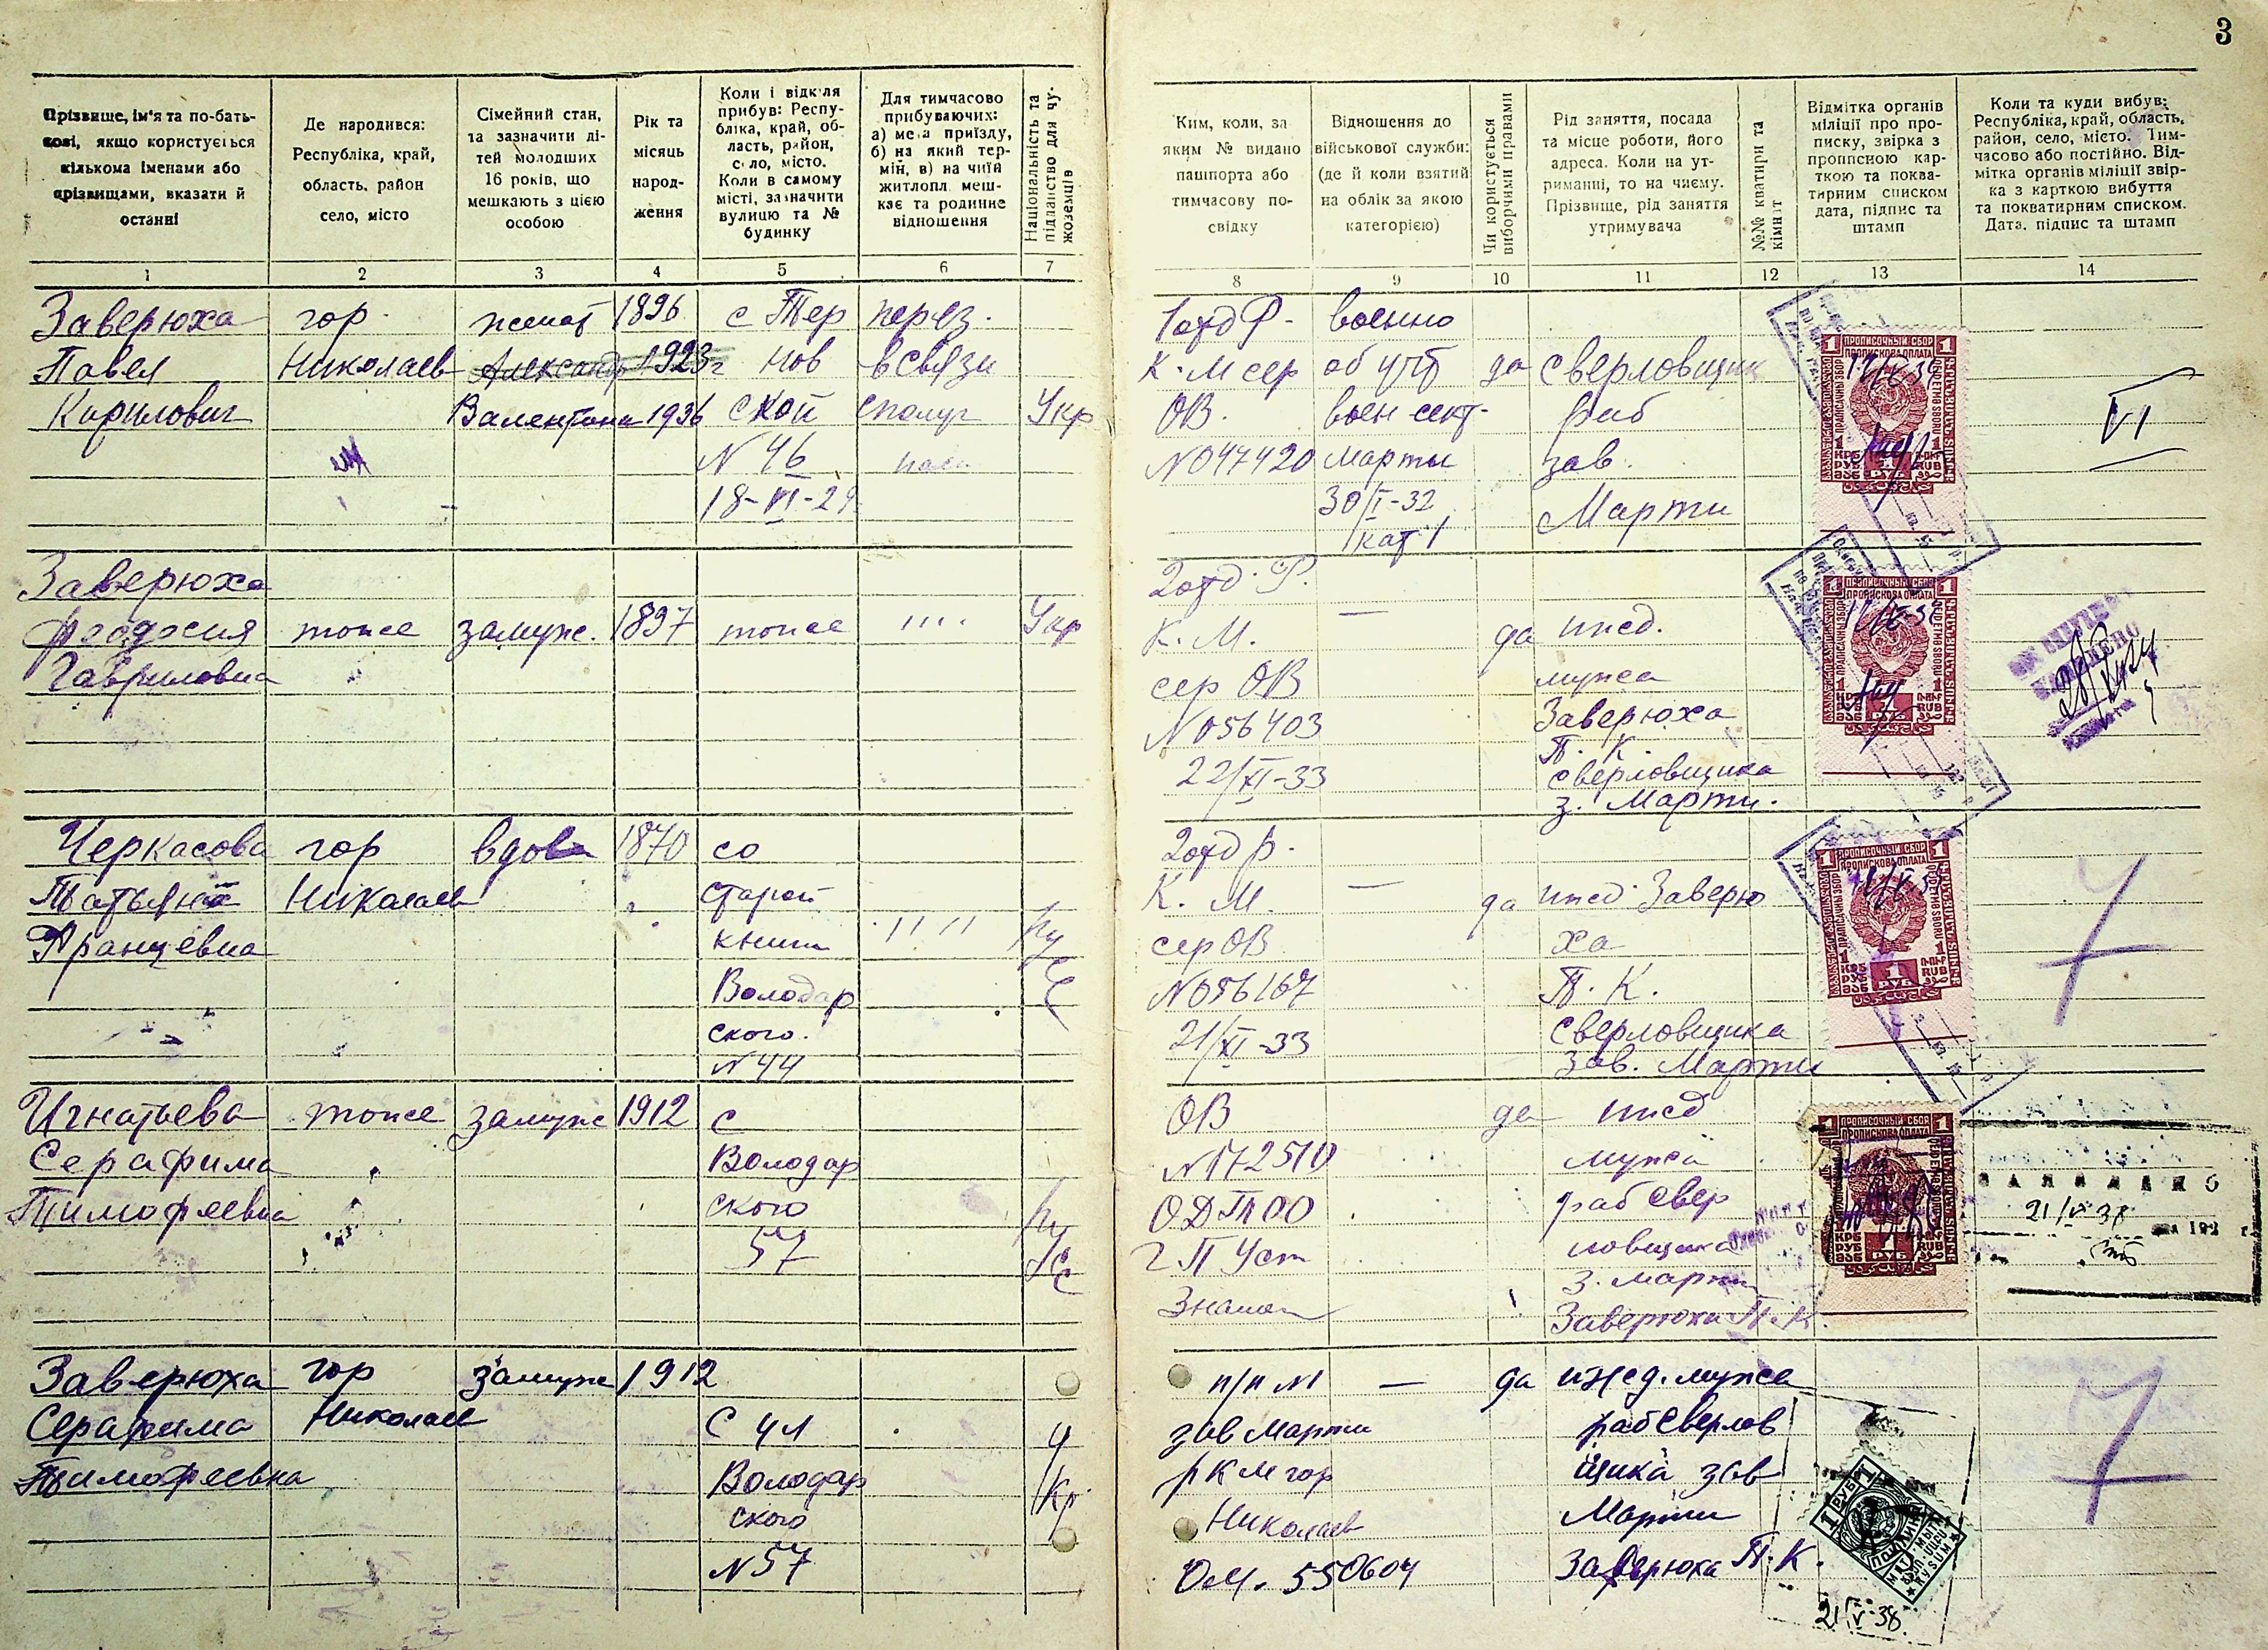 3
Прізвище, ім'я та по-бать-
кові, якщо користується
кількома іменами або
прізвищами, вказати й
останні
Де народився:
Республіка, край,
область, район
село, місто
Сімейний стан,
та зазначити ді-
тей молодших
16 років, що
мешкають з цією
особою
Рік та
місяць
народ-
ження
Коли і відкіля
прибув: Респу-
бліка, край, об-
ласть, район,
село, місто.
Коли в самому
місті, зазначити
вулицю та №
будинку
Для тимчасово
прибуваючих:
а) мета приїзду,
б) на який тер-
мін, в) на чиїй
житлопл. меш-
кає та родинне
відношення
Національність та
підданство для чу-
жоземців
Ким, коли, за
яким № видано
пашпорта або
тимчасову по-
свідку
Відношення до
військової служби:
(де й коли взятий
на облік за якою
категорією)
Чи користується
виборчими правами
Рід заняття, посада
та місце роботи, його
адреса. Коли на ут-
риманні, то на чиєму.
Прізвище, рід заняття
утримувача
№№ кватири та
кімнат
Відмітка органів
міліції про про-
писку, звірка з
прописною кар-
ткою та поква-
тирним списком
дата, підпис та
штамп
Коли та куди вибув:
Республіка, край, область,
район, село, місто. Тим-
часово або постійно. Від-
мітка органів міліції звір-
ка з карткою вибуття
та покватирним списком.
Дата, підпис та штамп
1 2 3 4 5 6 7 8 9 10 11 12 13 14
Заверюха
Павел
Кирилович
гор.
Николаев
женат
Александр 1923г
Валентина 1936
1896
с Тер
нов
ской
N 46
18-VI-29
перез.
в связи
Укр
1 отд Р.
К. М сер
ОВ.
N 047420
военно
об учт
воен сект.
Марты
30/I-32
кат 1
да
сверловщик
раб
зав.
Марти
ПРОПИСОЧНЫЙ СБОР
ПРОПИСКОВА ОПЛАТА
1 РУБ
VI
Заверюха
Феодосия
Гавриловна
тоже
замуж.
1897
тоже
" "
Укр
2 отд. Р.
К. М.
сер ОВ
N 056403
22/XI-33
—
да
ижд.
мужа
Заверюха
П. К.
сверловщика
з. Марти.
ПРОПИСОЧНЫЙ СБОР
ПРОПИСКОВА ОПЛАТА
1 РУБ
Черкасова
Татьяна
Францевна
гор
Николаев
вдова
1870
со
старой
книги
Володар
ского.
N 44
" "
Ру
с
2 отд Р.
К. М.
сер ОВ
N 056167
21/XI-33
—
да
ижд. Заверю
ха
П. К.
Сверловщика
Зав. Марти
ПРОПИСОЧНЫЙ СБОР
ПРОПИСКОВА ОПЛАТА
1 РУБ
Игнатьева
Серафима
Тимофеевна
тоже
замуж
1912
с
Володар
ского
57
Ру
сс
ОВ
N 172510
г П Уст
да
ижд
мужа
раб свер
ловщика
з. Марти
Заверюха П. К.
ПРОПИСОЧНЫЙ СБОР
ПРОПИСКОВА ОПЛАТА
1 РУБ
21/V 38
Заверюха
Серафима
Тимофеевна
гор
Николаев
замуж
1912
С ул
Володар
ского
N 57
У
кр
п/п N1
зав Марти
РКМ гор
Николаев
550604
—
да
ижд. мужа
раб Сверлов
щика зав
Марти
Заверюха П. К.
1 РУБ
21/V-38.